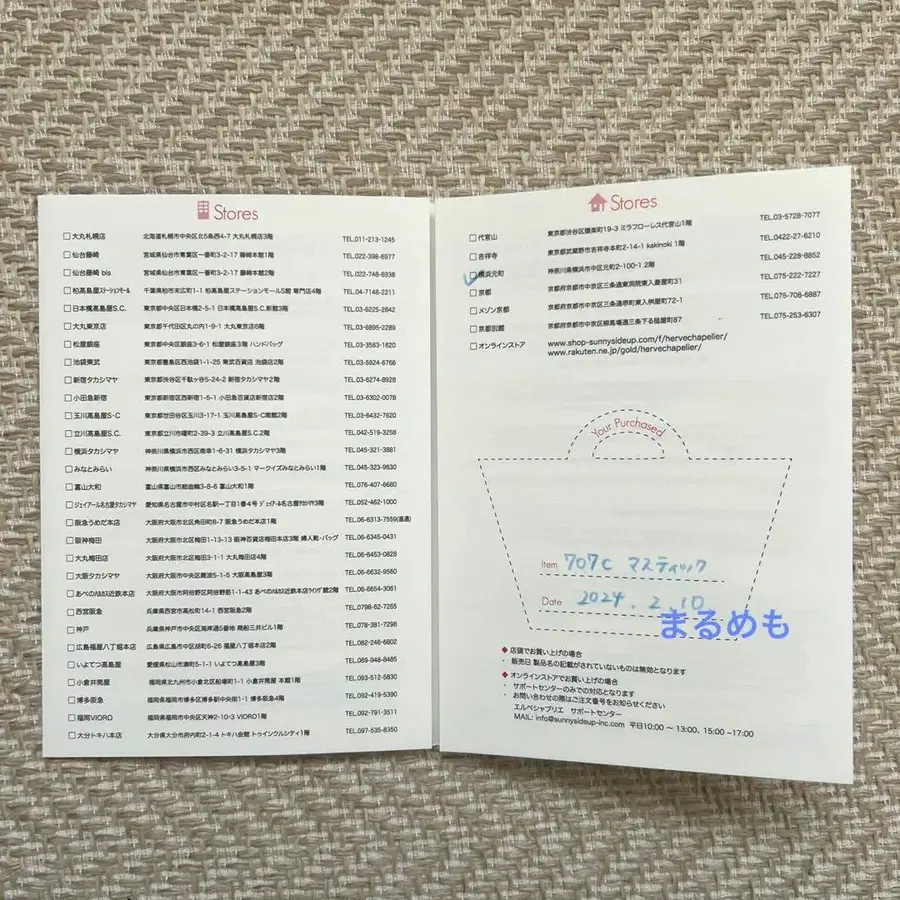 Stores
大丸札幌店 北海道札幌市中央区北5条西4-7 大丸札幌店3階 TEL.011-213-1245
仙台藤崎 宮城県仙台市青葉区一番町3-2-17 藤崎本館1階 TEL.022-398-6977
仙台藤崎 bis 宮城県仙台市青葉区一番町3-2-17 藤崎本館2階 TEL.022-748-6938
柏高島屋ステーションモール 千葉県柏市末広町1-1 柏高島屋ステーションモールS館 専門店4階 TEL.04-7148-2211
日本橋高島屋S.C. 東京都中央区日本橋2-5-1 日本橋高島屋S.C.新館3階 TEL.03-6225-2842
大丸東京店 東京都千代田区丸の内1-9-1 大丸東京店6階 TEL.03-6895-2289
松屋銀座 東京都中央区銀座3-6-1 松屋銀座3階 ハンドバッグ TEL.03-3563-1620
池袋東武 東京都豊島区西池袋1-1-25 東武百貨店 池袋店2階 TEL.03-5924-6766
新宿タカシマヤ 東京都渋谷区千駄ヶ谷5-24-2 新宿タカシマヤ2階 TEL.03-6274-8928
小田急新宿 東京都新宿区西新宿1-5-1 小田急百貨店新宿店2階 TEL.03-6302-0078
玉川高島屋S・C 東京都世田谷区玉川3-17-1 玉川高島屋S・C南館2階 TEL.03-6432-7620
立川高島屋S.C. 東京都立川市曙町2-39-3 立川高島屋S.C.2階 TEL.042-519-3258
横浜タカシマヤ 神奈川県横浜市西区南幸1-6-31 横浜タカシマヤ3階 TEL.045-321-3881
みなとみらい 神奈川県横浜市西区みなとみらい3-5-1 マークイズみなとみらい1階 TEL.045-323-9630
富山大和 富山県富山市総曲輪3-8-6 富山大和1階 TEL.076-407-6680
ジェイアール名古屋タカシマヤ 愛知県名古屋市中村区名駅一丁目1番4号 ジェイアール名古屋タカシマヤ3階 TEL.052-462-1000
阪急うめだ本店 大阪府大阪市北区角田町8-7 阪急うめだ本店1階 TEL.06-6313-7559(直通)
阪神梅田 大阪府大阪市北区梅田1-13-13 阪神百貨店梅田本店3階 婦人靴・バッグ TEL.06-6345-0431
大丸梅田店 大阪府大阪市北区梅田3-1-1 大丸梅田店4階 TEL.06-6453-0828
大阪タカシマヤ 大阪府大阪市中央区難波5-1-5 大阪高島屋3階 TEL.06-6632-9560
あべのハルカス近鉄本店 大阪府大阪市阿倍野区阿倍野筋1-1-43 あべのハルカス近鉄本店ウイング館2階 TEL.06-6654-3061
西宮阪急 兵庫県西宮市高松町14-1 西宮阪急2階 TEL.0798-62-7265
神戸 兵庫県神戸市中央区海岸通5番地 商船三井ビル1階 TEL.078-381-7298
広島福屋八丁堀本店 広島県広島市中区胡町6-26 福屋八丁堀本店2階 TEL.082-246-6802
いよてつ高島屋 愛媛県松山市湊町5-1-1 いよてつ高島屋3階 TEL.089-948-8485
小倉井筒屋 福岡県北九州市小倉北区船場町1-1 小倉井筒屋 本館1階 TEL.093-512-5830
博多阪急 福岡県福岡市博多区博多駅中央街1-1 博多阪急4階 TEL.092-419-5390
福岡VIORO 福岡県福岡市中央区天神2-10-3 VIORO1階 TEL.092-791-3511
大分トキハ本店 大分県大分市府内町2-1-4 トキハ会館 トゥインクルシティ1階 TEL.097-535-8350
Stores
代官山 東京都渋谷区猿楽町19-3 ミラフローレス代官山1階 TEL.03-5728-7077
吉祥寺 東京都武蔵野市吉祥寺本町2-14-1 kakinoki 1階 TEL.0422-27-6210
横浜元町 神奈川県横浜市中区元町2-100-1 2階 TEL.045-228-8852
京都 京都府京都市中京区三条通東洞院東入菱屋町31 TEL.075-222-7227
メゾン京都 京都府京都市中京区三条通堺町東入桝屋町72-1 TEL.075-708-6887
京都別館 京都府京都市中京区柳馬場通三条下る槌屋町87 TEL.075-253-6307
オンラインストア www.shop-sunnysideup.com/f/hervechapelier/
www.rakuten.ne.jp/gold/hervechapelier/
Your Purchased
Item 707C マスティック
Date 2024. 2. 10
まるめも
◆店頭でお買い上げの場合
・ 販売日 製品名の記載がされていないものは無効となります
◆オンラインストアでお買い上げの場合
・ サポートセンターのみでの対応となります
・ お問い合わせの際はご注文番号をお知らせください
エルベシャプリエ サポートセンター
MAIL: info@sunnysideup-inc.com 平日10:00 〜 13:00、15:00 〜17:00